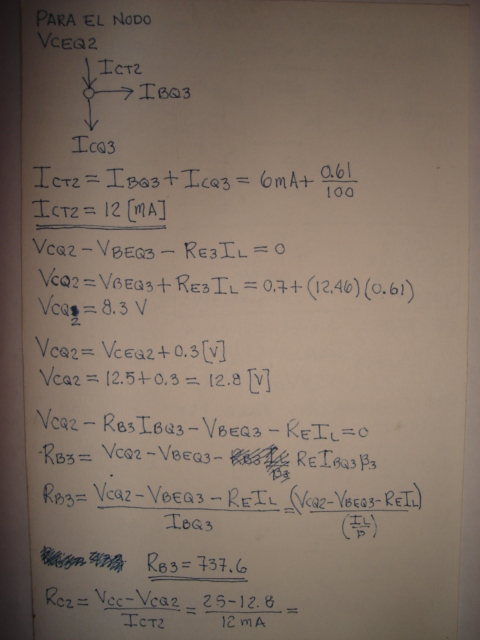 PARA EL NODO
VCEQ2
ICT2
IBQ3
ICQ3
ICT2 = IBQ3 + ICQ3 = 6mA + 0.61/100
ICT2 = 12 [mA]
VCQ2 - VBEQ3 - RE3 IL = 0
VCQ2 = VBEQ3 + RE3 IL = 0.7 + (12.46)(0.61)
VCQ2 = 8.3 V
VCQ2 = VCEQ2 + 0.3 [V]
VCQ2 = 12.5 + 0.3 = 12.8 [V]
VCQ2 - RB3 IBQ3 - VBEQ3 - RE IL = 0
RB3 = VCQ2 - VBEQ3 - RE IBQ3 β3
RB3 = VCQ2 - VBEQ3 - RE IL / IBQ3 = (VCQ2 - VBEQ3 - RE IL) / (IL/β)
RB3 = 737.6
RC2 = VCC - VCQ2 / ICT2 = 25 - 12.8 / 12 mA =